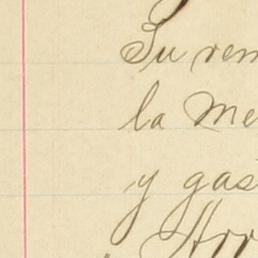 Su rem
la Me
y gas